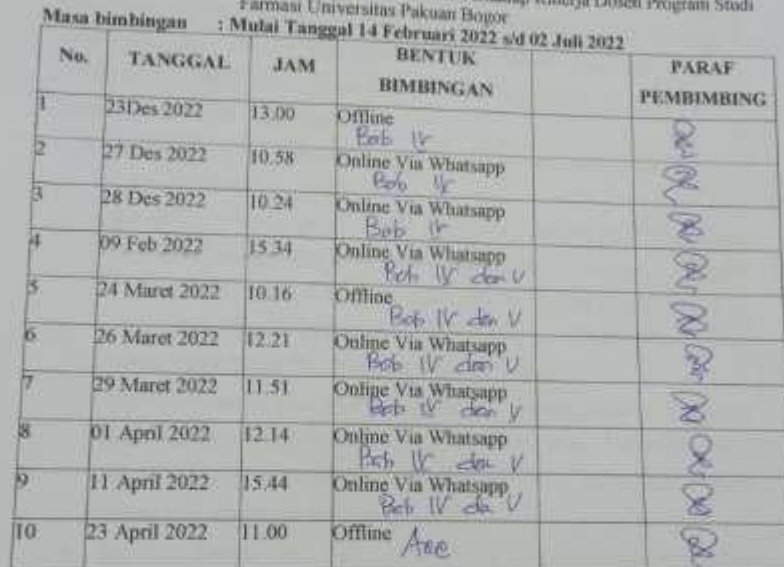 Kinerja Dosen Program Studi
Farmasi Universitas Pakuan Bogor
Masa bimbingan : Mulai Tanggal 14 Februari 2022 s/d 02 Juli 2022
No. TANGGAL JAM BENTUK BIMBINGAN PARAF PEMBIMBING
1 23Des 2022 13.00 Offline
Bab IV
2 27 Des 2022 10.58 Online Via Whatsapp
Bab IV
3 28 Des 2022 10.24 Online Via Whatsapp
Bab IV
4 09 Feb 2022 15.34 Online Via Whatsapp
Bab IV dan V
5 24 Maret 2022 10.16 Offline
Bab IV dan V
6 26 Maret 2022 12.21 Online Via Whatsapp
Bab IV dan V
7 29 Maret 2022 11.51 Online Via Whatsapp
Bab IV dan V
8 01 April 2022 12.14 Online Via Whatsapp
Bab IV dan V
9 11 April 2022 15.44 Online Via Whatsapp
Bab IV da V
10 23 April 2022 11.00 Offline